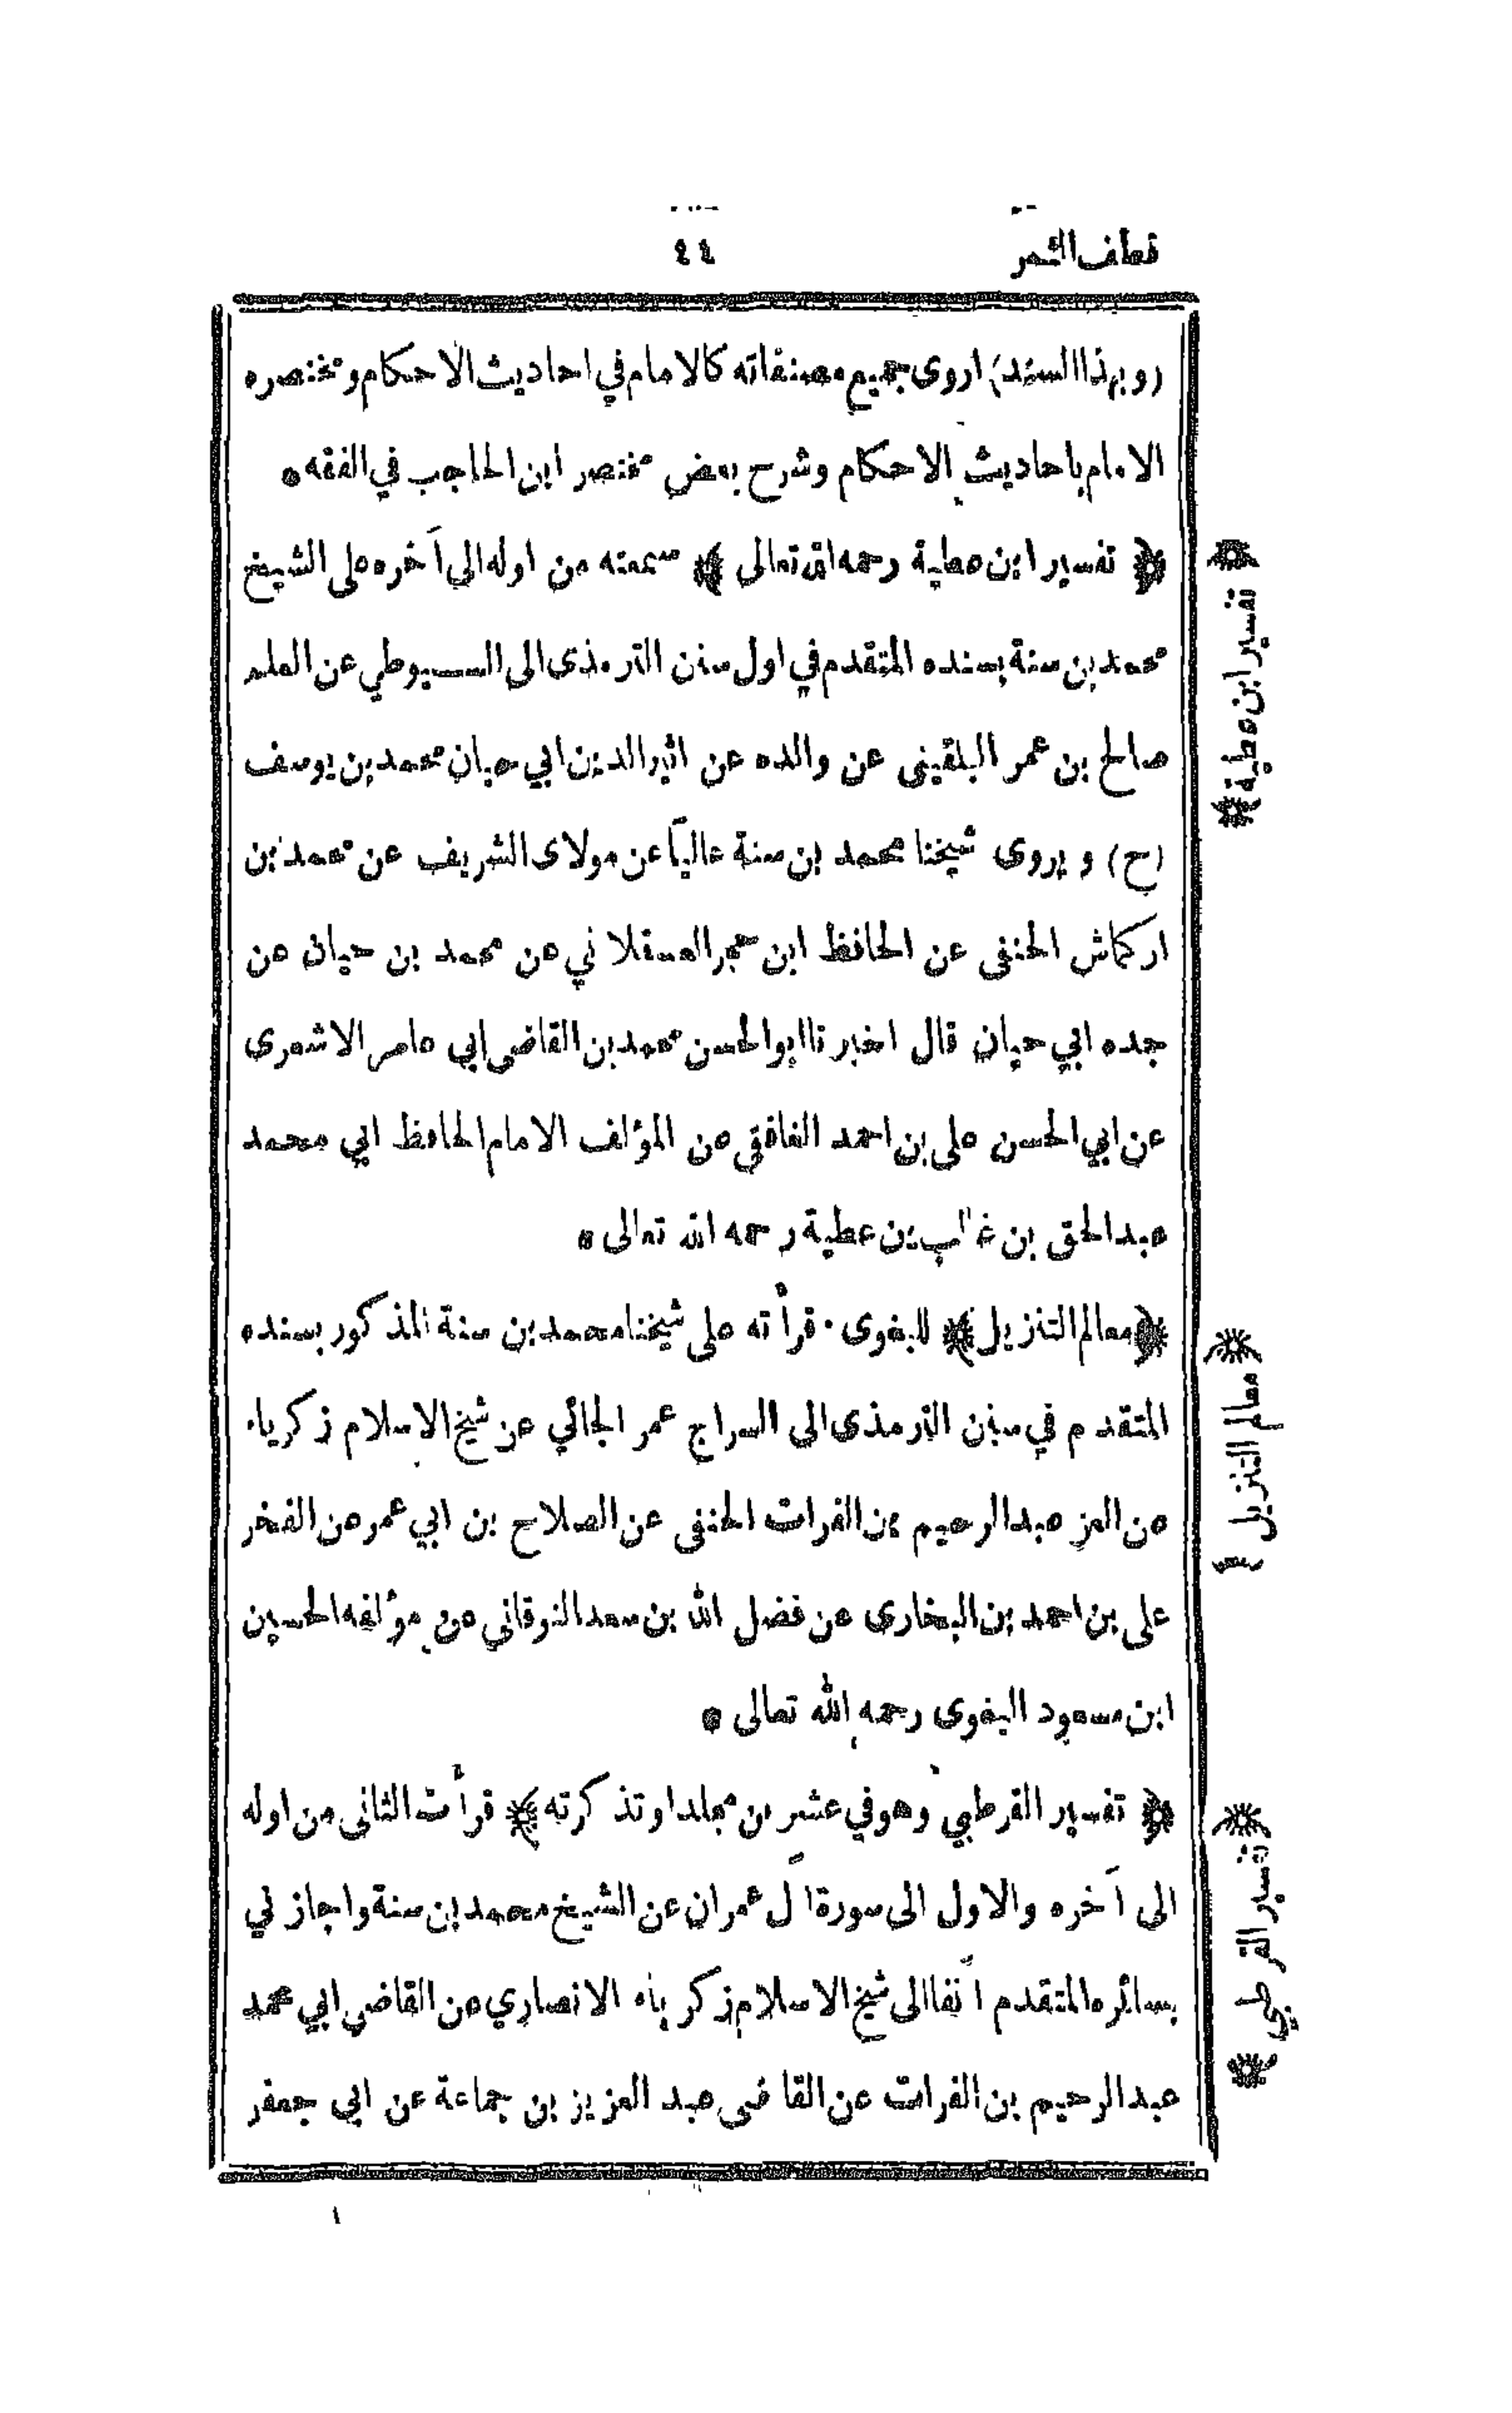 قطف الثمر
٤٤
(وبهذا السند) اروى جميع مصنفاته كالامام في احاديث الاحكام ومختصره
الامام باحاديث الاحكام وشرح بعض مختصر ابن الحاجب في الفقه ●
﴿ تفسير ابن عطية رحمه الله تعالى ﴾ سمعته من اوله الى آخره على الشيخ
محمد بن سنة بسنده المتقدم في اول سنن الترمذى الى السيوطي عن العلم
صالح بن عمر البلقينى عن والده عن اثير الدين ابي حيان محمد بن يوسف
(ح) و يروى شيخنا محمد بن سنة عالياً عن مولاى الشريف عن محمد بن
اركماش الحنفى عن الحافظ ابن حجر العسقلاني عن محمد بن حيان عن
جده ابي حيان قال اخبرنا ابو الحسن محمد بن القاضى ابي عامر الاشعرى
عن ابي الحسن على بن احمد الغافقي عن المؤلف الامام الحافظ ابي محمد
عبد الحق بن غالب بن عطية رحمه الله تعالى ●
﴿ معالم التنزيل ﴾ للبغوى · قرأته على شيخنا محمد بن سنة المذكور بسنده
المتقدم في سنن الترمذى الى السراج عمر الجائي عن شيخ الاسلام زكرياء
عن العز عبد الرحيم بن الفرات الحنفى عن الصلاح بن ابي عمر عن الفخر
على بن احمد بن البخارى عن فضل الله بن سعد النوقاني عن مؤلفه الحسين
ابن مسعود البغوى رحمه الله تعالى ●
﴿ تفسير القرطبي وهو في عشرين مجلدا وتذكرته ﴾ قرأت الثانى من اوله
الى آخره والاول الى سورة آل عمران عن الشيخ محمد بن سنة واجاز لي
بسائره المتقدم آنفا الى شيخ الاسلام زكرياء الانصاري عن القاضي ابي محمد
عبد الرحيم بن الفرات عن القاضى عبد العزيز بن جماعة عن ابي جعفر
﴿ تفسير ابن عطية ﴾
﴿ معالم التنزيل ﴾
﴿ تفسير القرطبي ﴾